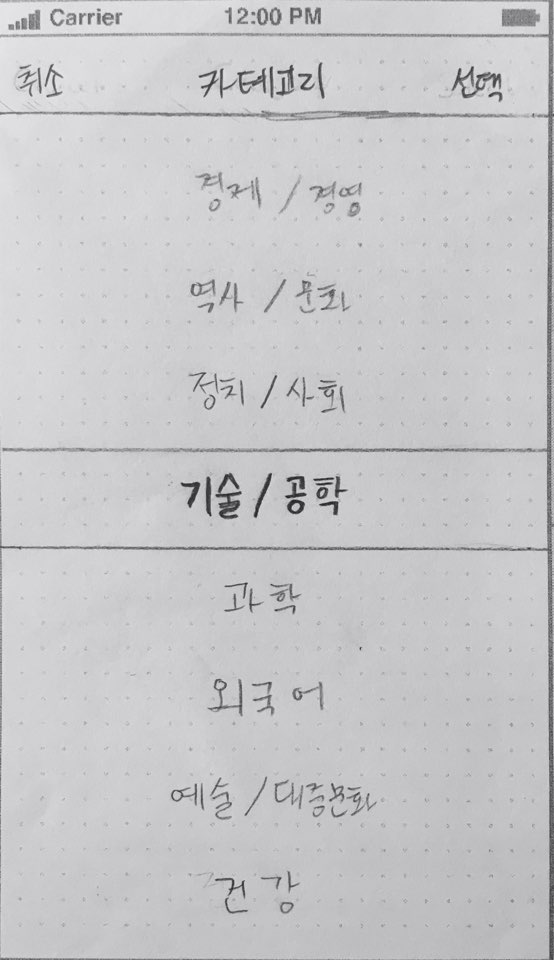 Carrier 12:00 PM
취소 카테고리 선택
경제 / 경영
역사 / 문화
정치 / 사회
기술 / 공학
과학
외국어
예술 / 대중문화
건강